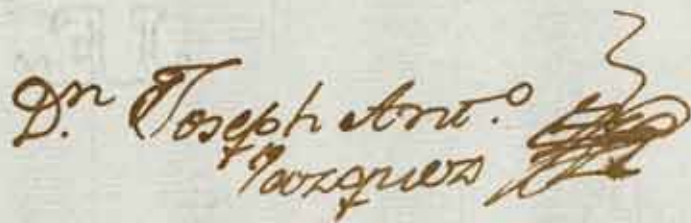 D.n Joseph Ant.o
Vazquez